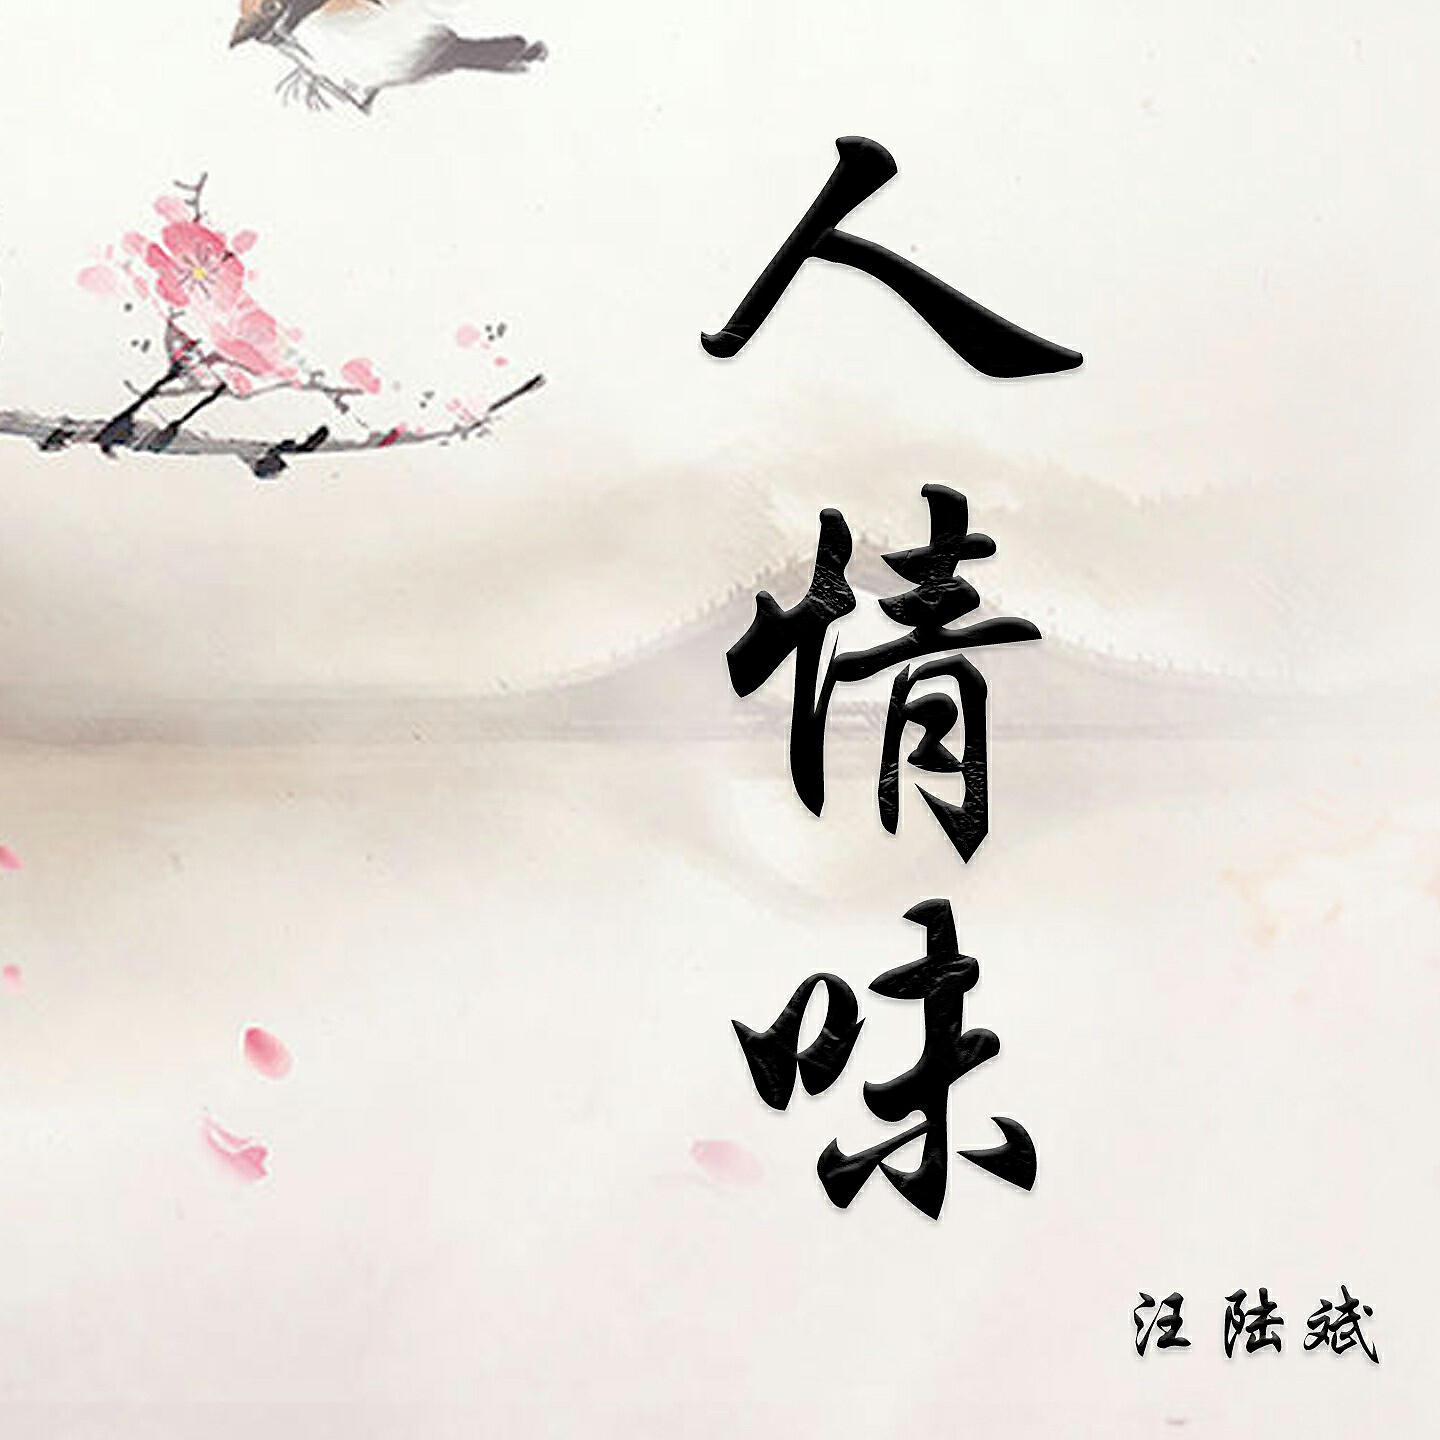 人情味
汪陆斌